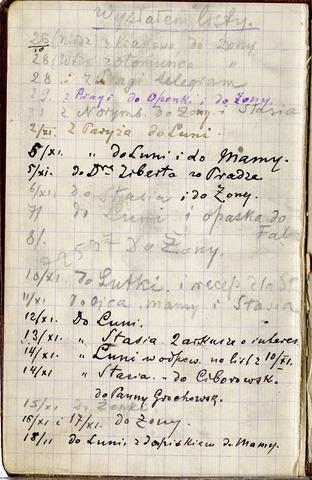 Wysłałem listy.
26/10 z Krakowa do Żony
28/ z Ołomuńca "
28 i z Pragi telegram
29. z Pragi do Openk. i do Żony.
31 z Norymb. do Żony i Stasia
2/XI. z Paryża do Luni.
5/XI. " do Luni i do Mamy.
5/XI. do Dra Urberta w Pradze
6/XI do Stasia i do Żony.
7/ do Luni i opaska do
8/. Do Żony.
10/XI. do Lutki i recep. dla
11/XI do ojca, mamy i Stasia
12/XI. Do Luni.
13/XI. " Stasia 2 arkusze o interes.
14/XI. " Luni w odpow. na list z 10/XI.
14/XI " Stasia - do Ciborowsk.
do Panny Grochowsk.
15/XI do Żonki
16/XI i 17/XI. do Żony.
18/11 do Luni, z dopiskiem do Mamy.